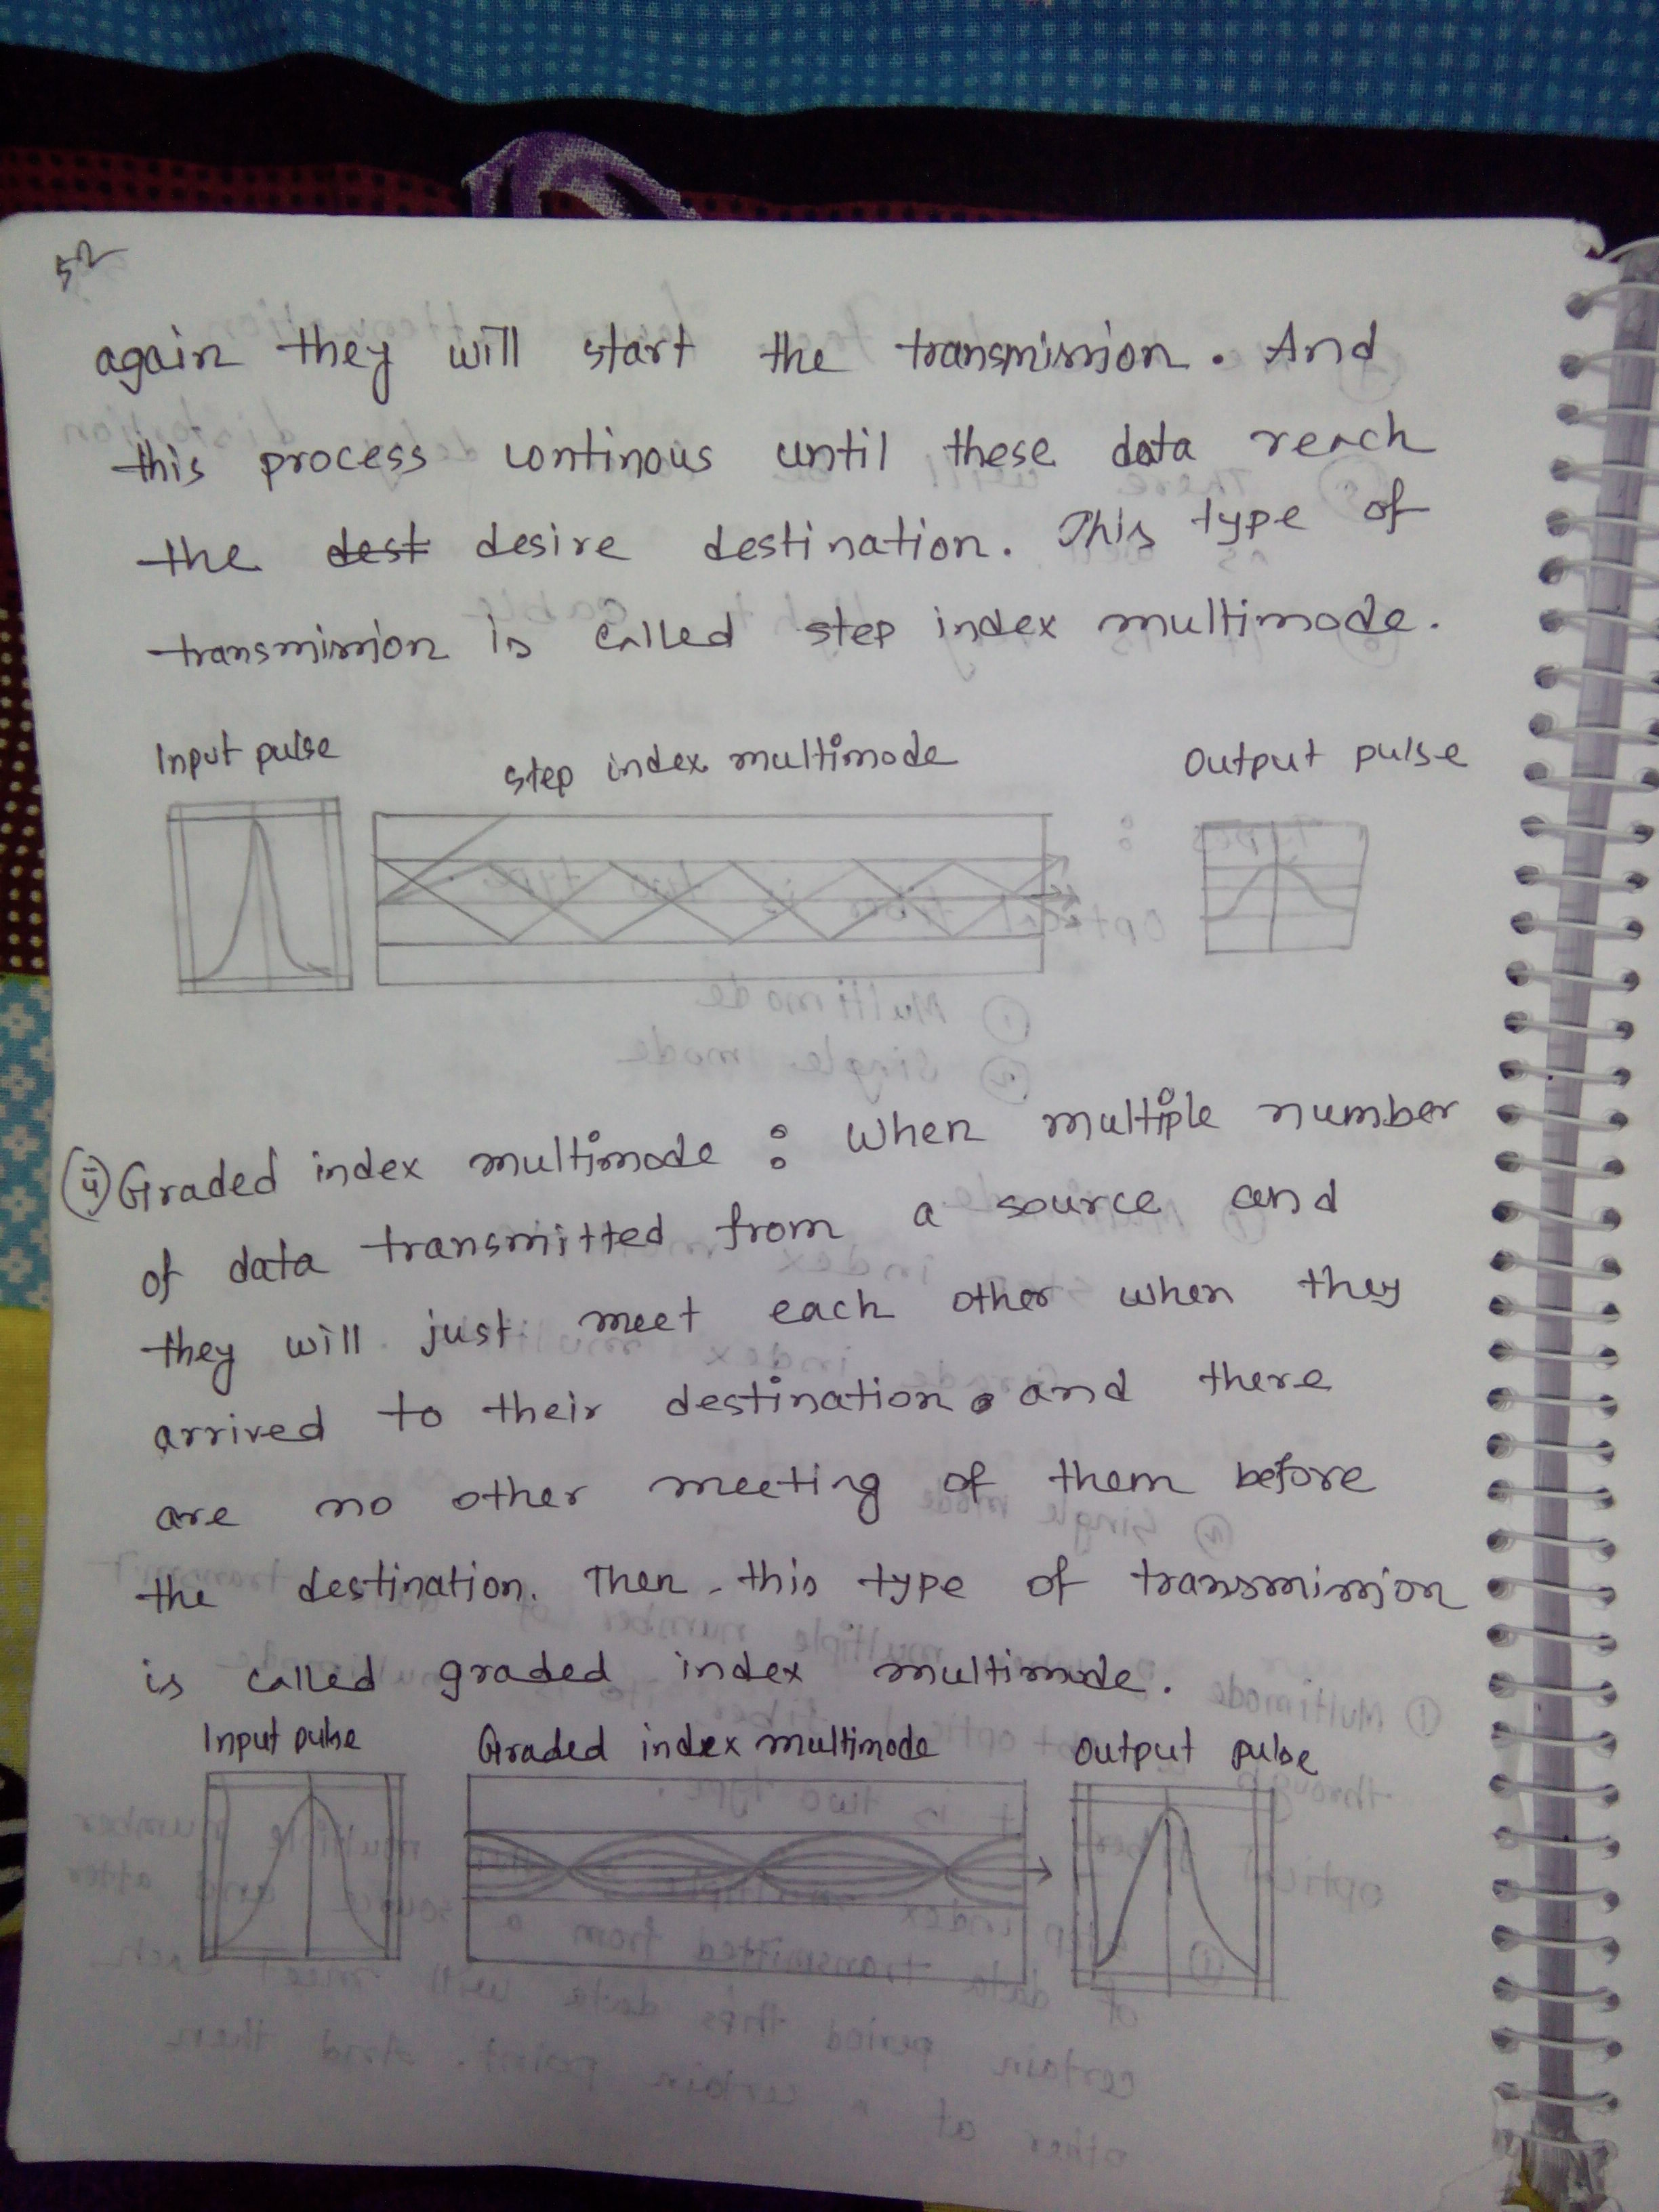 52
again they will start the transmission. And
this process continous until these data reach
the dest desire destination. This type of
transmission is called step index multimode.
Input pulse step index multimode Output pulse
(ii) Graded index multimode : When multiple number
of data transmitted from a source and
they will just meet each other when they
arrived to their destination. and there
are no other meeting of them before
the destination. Then this type of transmission
is called graded index multimode.
Input pulse Graded index multimode Output pulse